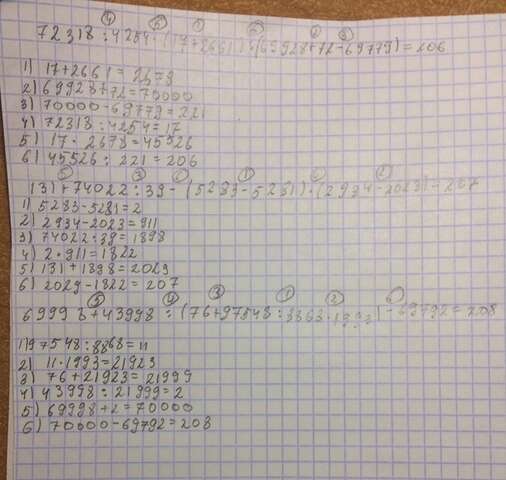 72318 : 4254 · (17+2661) : (69928+72-69779) = 206
1) 17+2661=2678
2) 69928+72=70000
3) 70000-69779=221
4) 72318:4254=17
5) 17·2678=45526
6) 45526:221=206
131+74022:39-(5283-5281)·(2934-2023)=207
1) 5283-5281=2
2) 2934-2023=911
3) 74022:39=1898
4) 2·911=1822
5) 131+1898=2029
6) 2029-1822=207
69998+43998:(76+97548:8868·1993)-69792=208
1) 97548:8868=11
2) 11·1993=21923
3) 76+21923=21999
4) 43998:21999=2
5) 69998+2=70000
6) 70000-69792=208